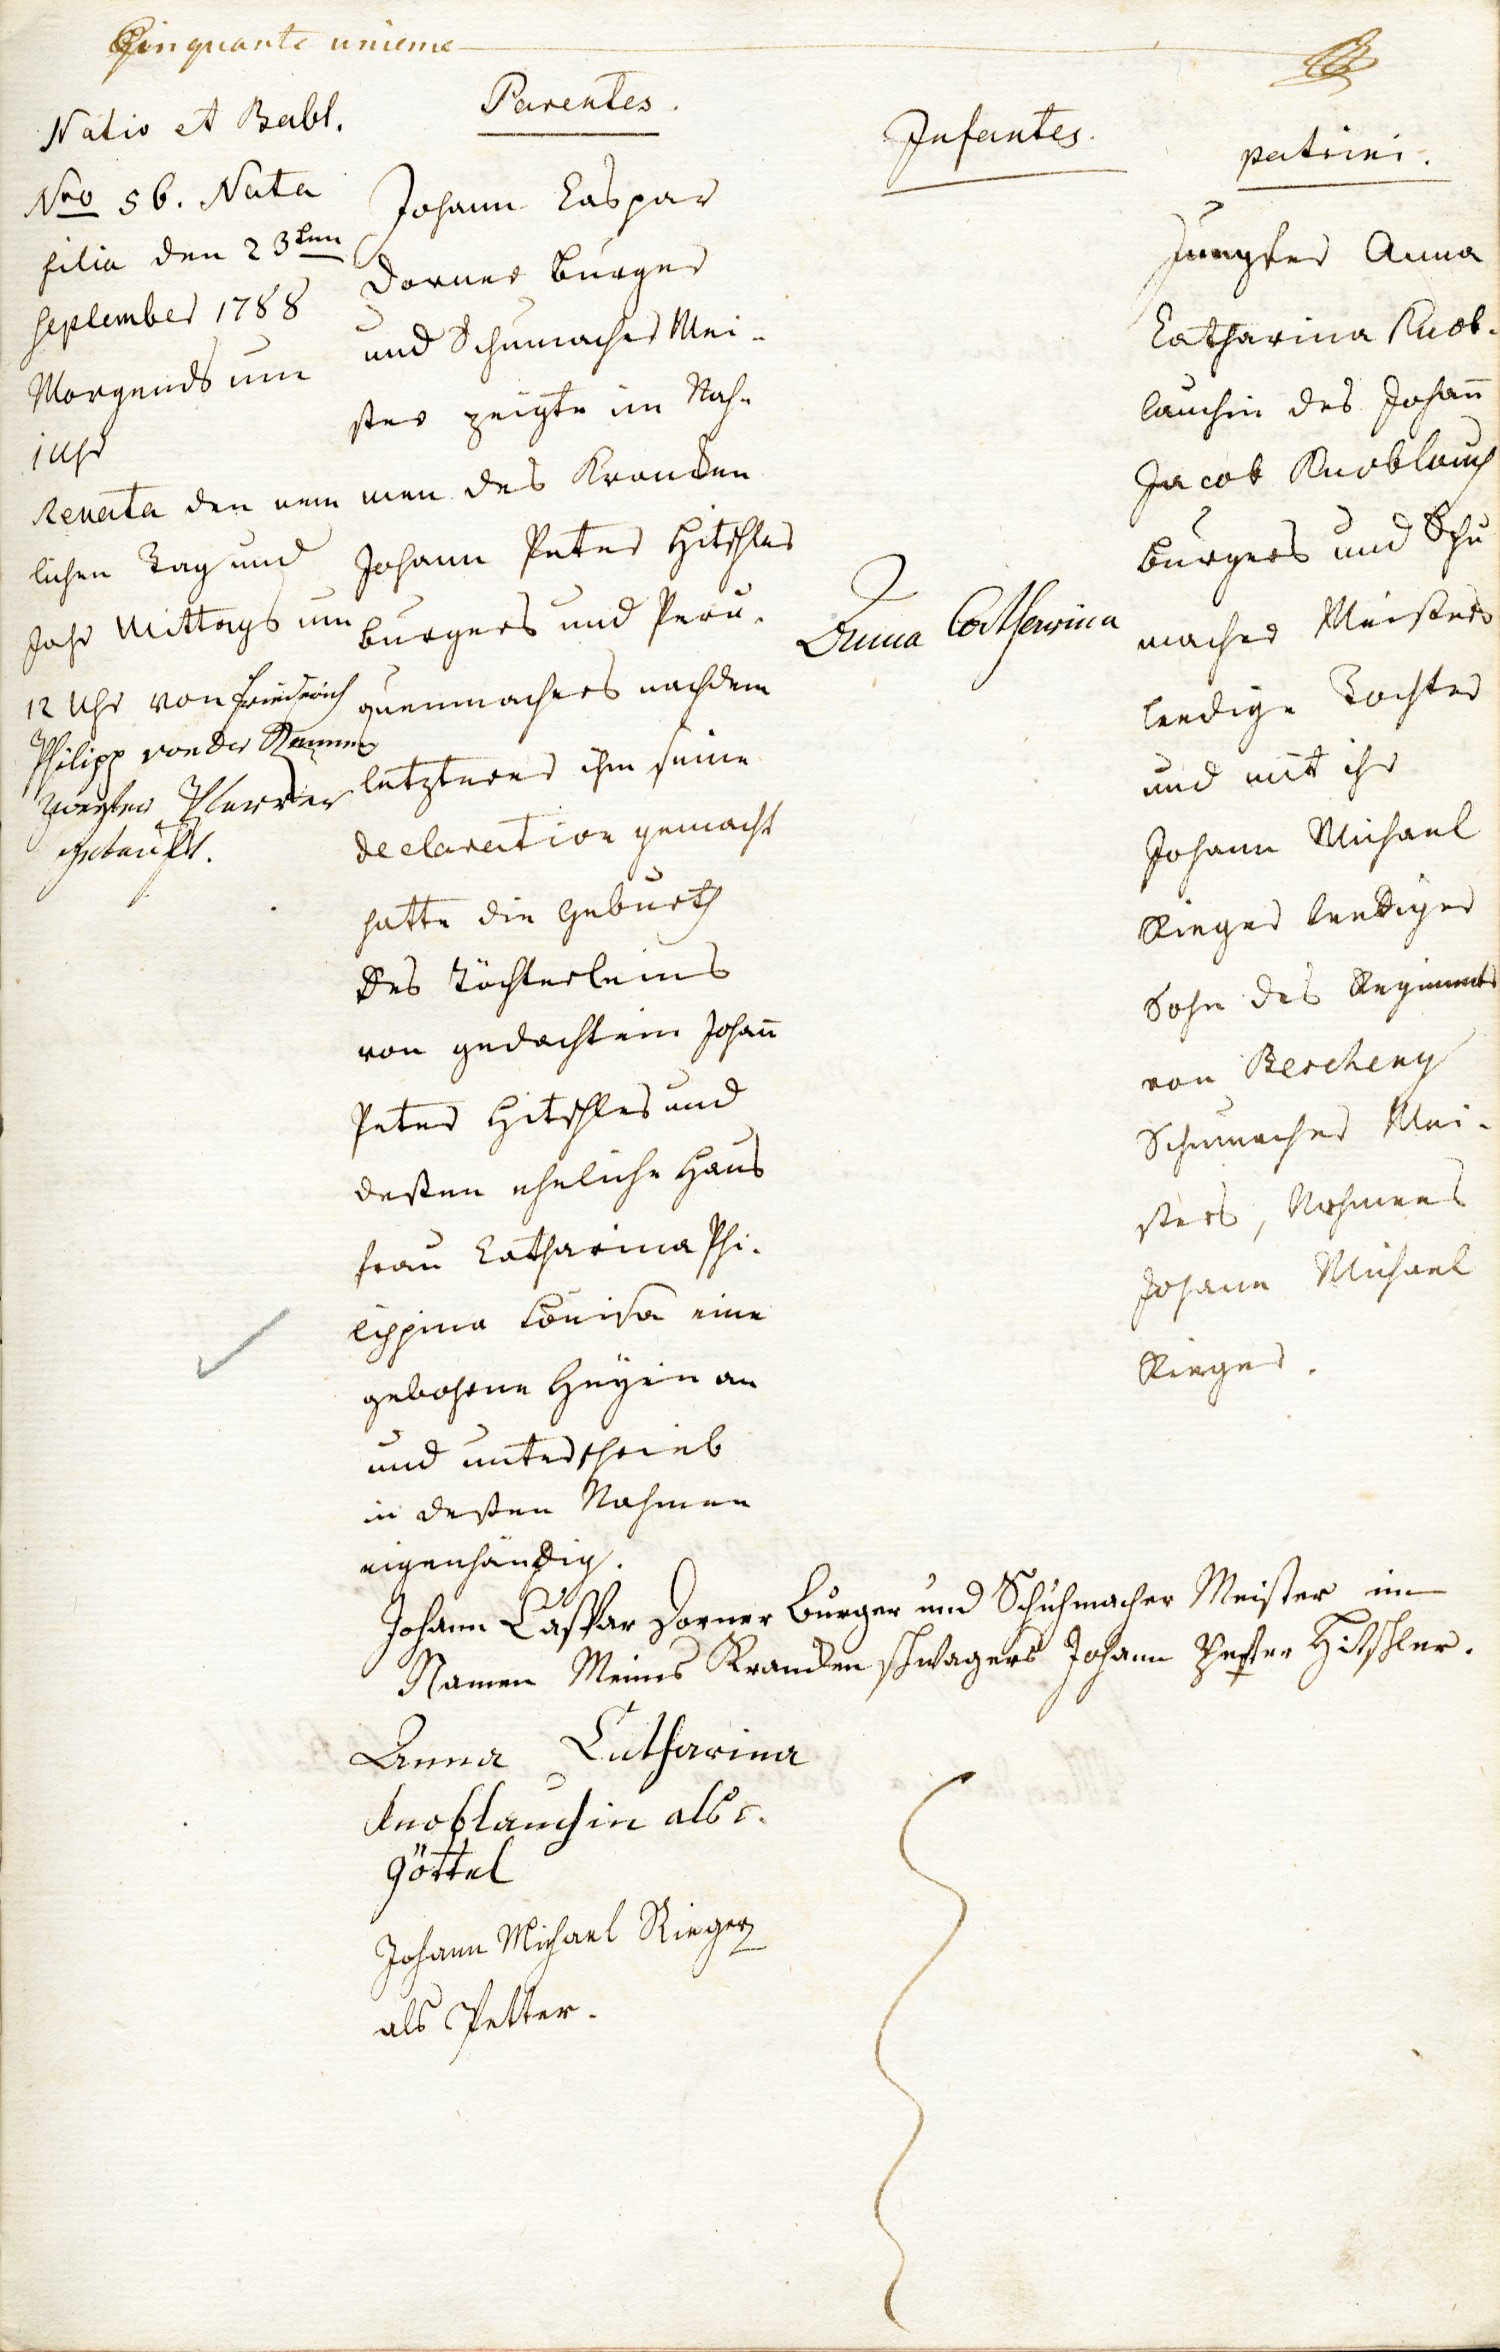 Cinquante unieme
Natio et Babt.
Nro 56. Nata
filia den 23ten
September 1788
Morgends um
1 Uhr
Renata den nem
lichen Tag und
Jahr Mittags um
12 Uhr von Friederich
Philipp von der
zweyter Pfarrer
getauft.
Parentes.
Johann Caspar
Dorner Burger
und Schumacher Mei-
ster zeigte im Nah-
men des Krancken
Johann Peter Hitschler
Burgers und Peru-
quenmachers nachdem
letzterer ihm seine
declaration gemacht
hatte die Geburth
des Töchterleins
von gedachtem Johan̄
Peter Hitschler und
deßen eheliche Haus
frau Catharina Phi-
lippina Louisa eine
gebohrne Heyin an
und unterschrieb
in deßen Nahmen
eigenhändig.
Infantes.
Anna Catharina
patrini.
Jungfer Anna
Catharina Knob-
lauchin des Johan̄
Jacob Knoblauch
Burgers und Schu
macher Meisters
leedige Tochter
und mit ihr
Johann Michael
Rieger leediger
Sohn des Regiments
von Bercheny
Schumacher Mei-
sters, Nahmens
Johann Michael
Rieger.
Johann Caspar Dorner Burger und Schuhmacher Meister im
Namen Meines Krancken schwagers Johann Peter Hitschler.
Anna Catharina
Knoblauchin als
Göttel
Johann Michael Rieger
als Petter.